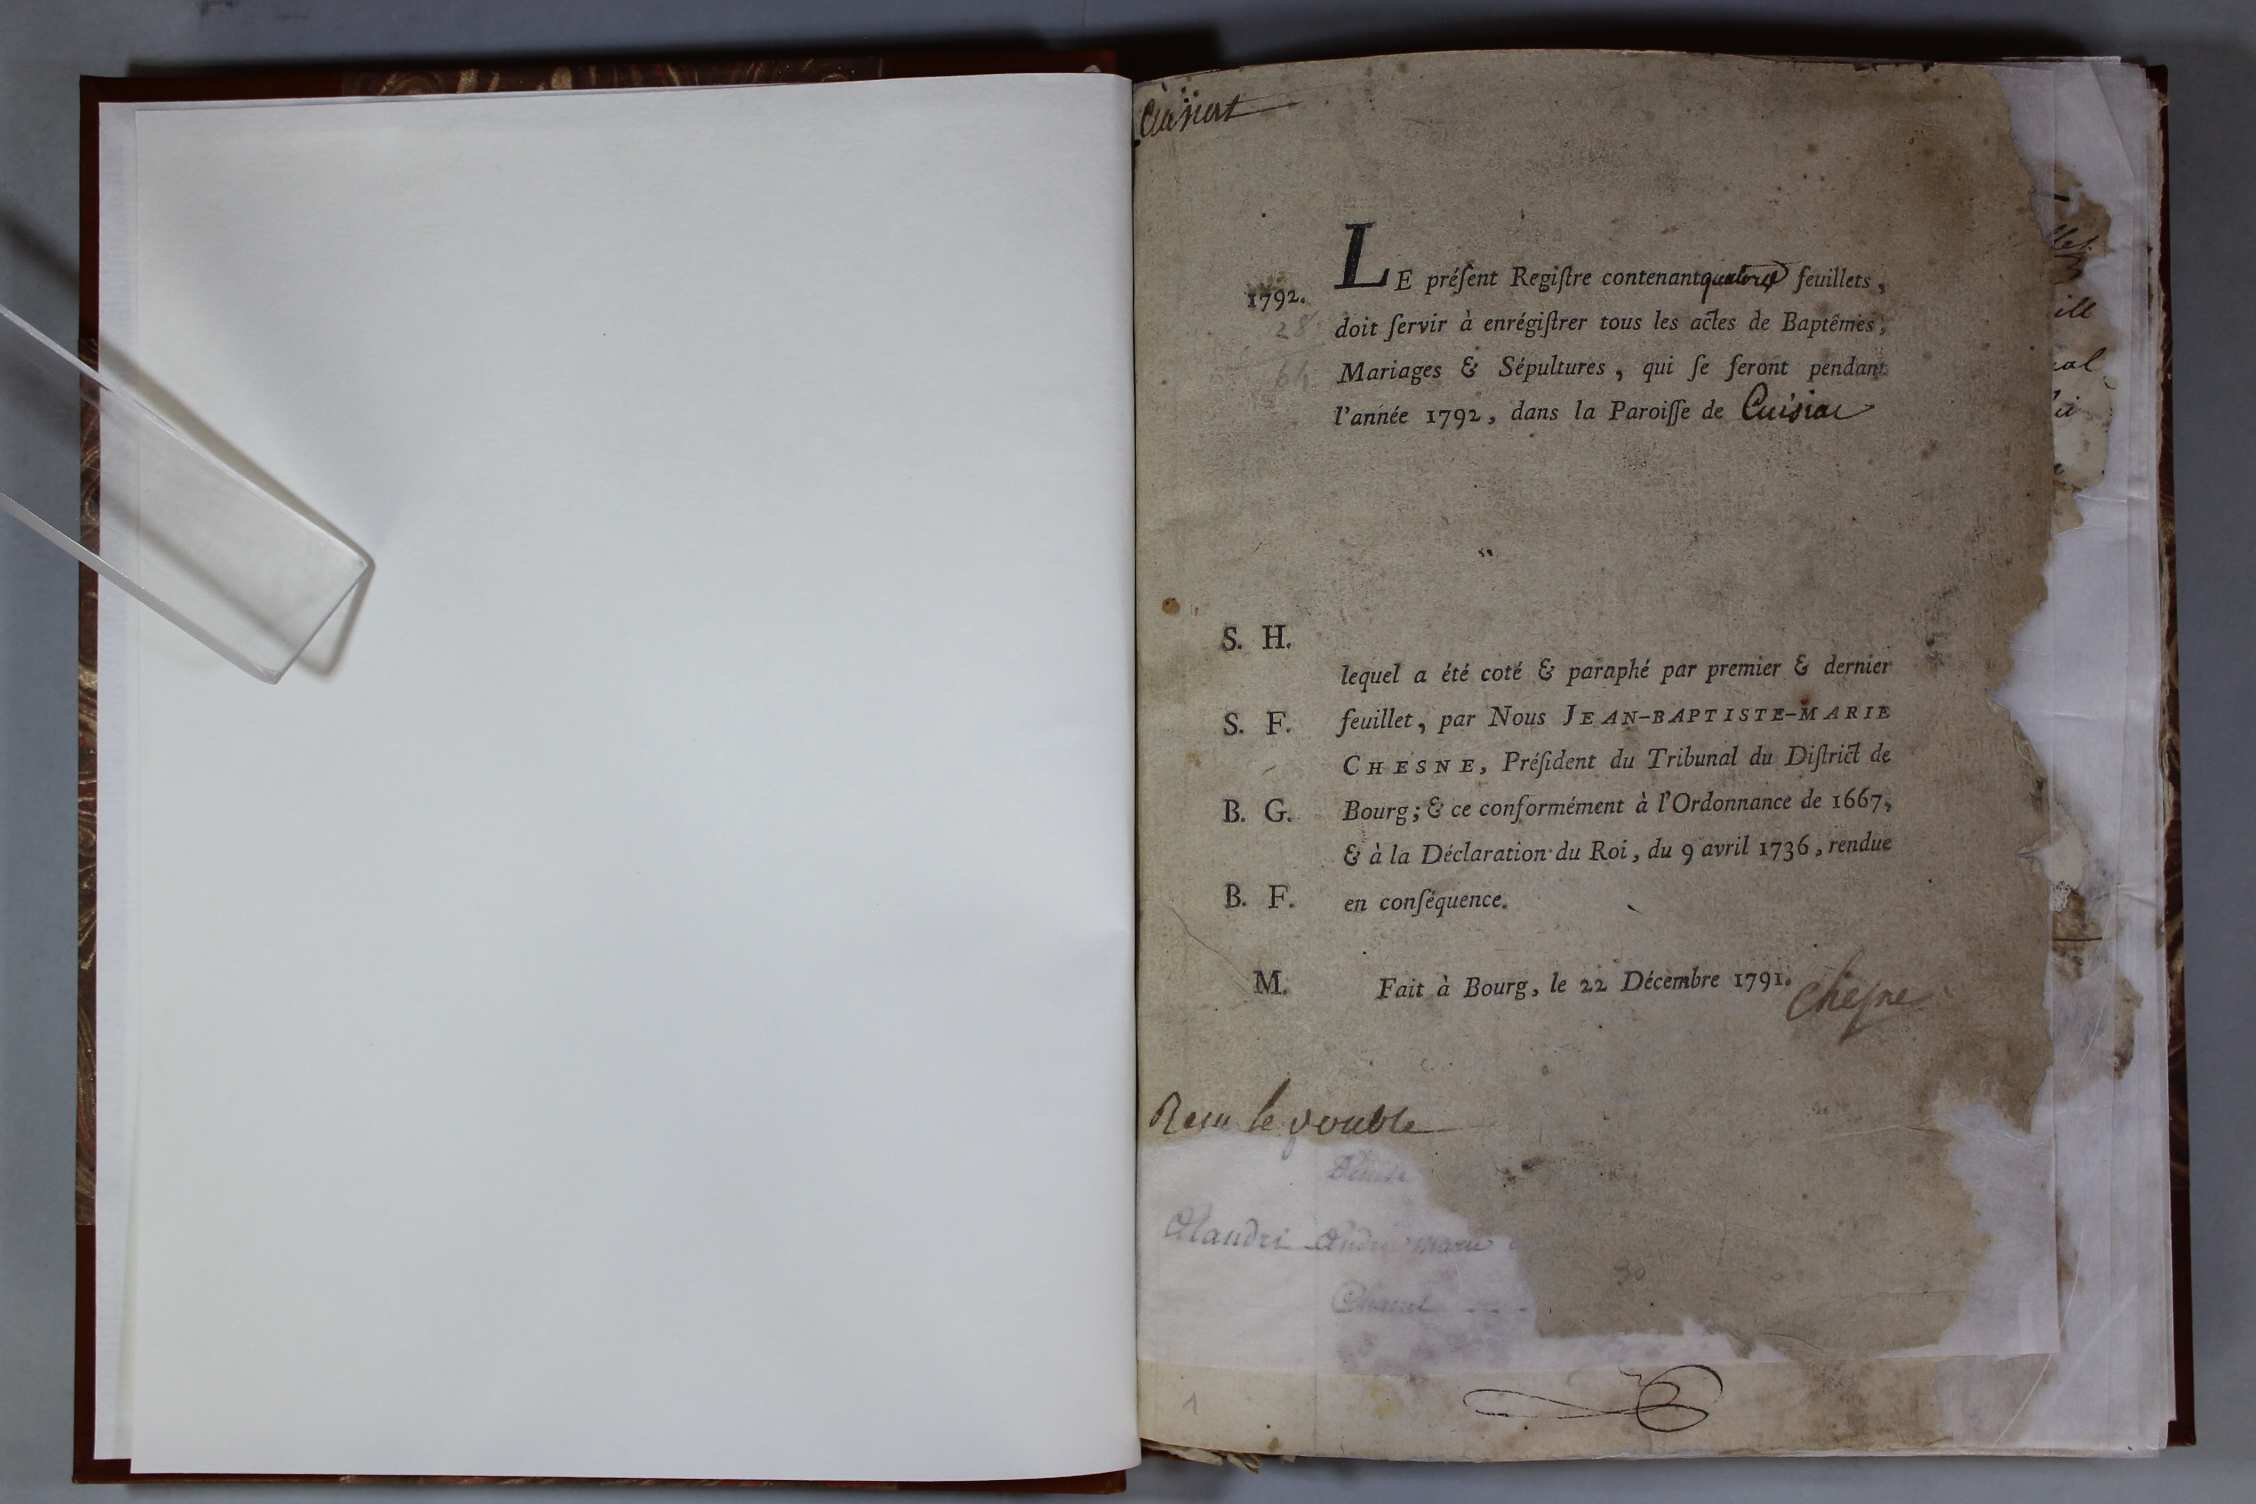 Cuisiat
1792.
LE préſent Regiſtre contenant quatorze feuillets,
28
doit ſervir à enrégiſtrer tous les actes de Baptêmes,
64
Mariages & Sépultures, qui ſe feront pendant
l'année 1792, dans la Paroiſſe de Cuisiat
S. H.
lequel a été coté & paraphé par premier & dernier
S. F.
feuillet, par Nous JEAN-BAPTISTE-MARIE
CHESNE, Préſident du Tribunal du Diſtrict de
B. G.
Bourg; & ce conformément à l'Ordonnance de 1667,
& à la Déclaration du Roi, du 9 avril 1736, rendue
B. F.
en conſéquence.
M.
Fait à Bourg, le 22 Décembre 1791.
Chesne
Reçu le double
Denise
andré marie
30
1